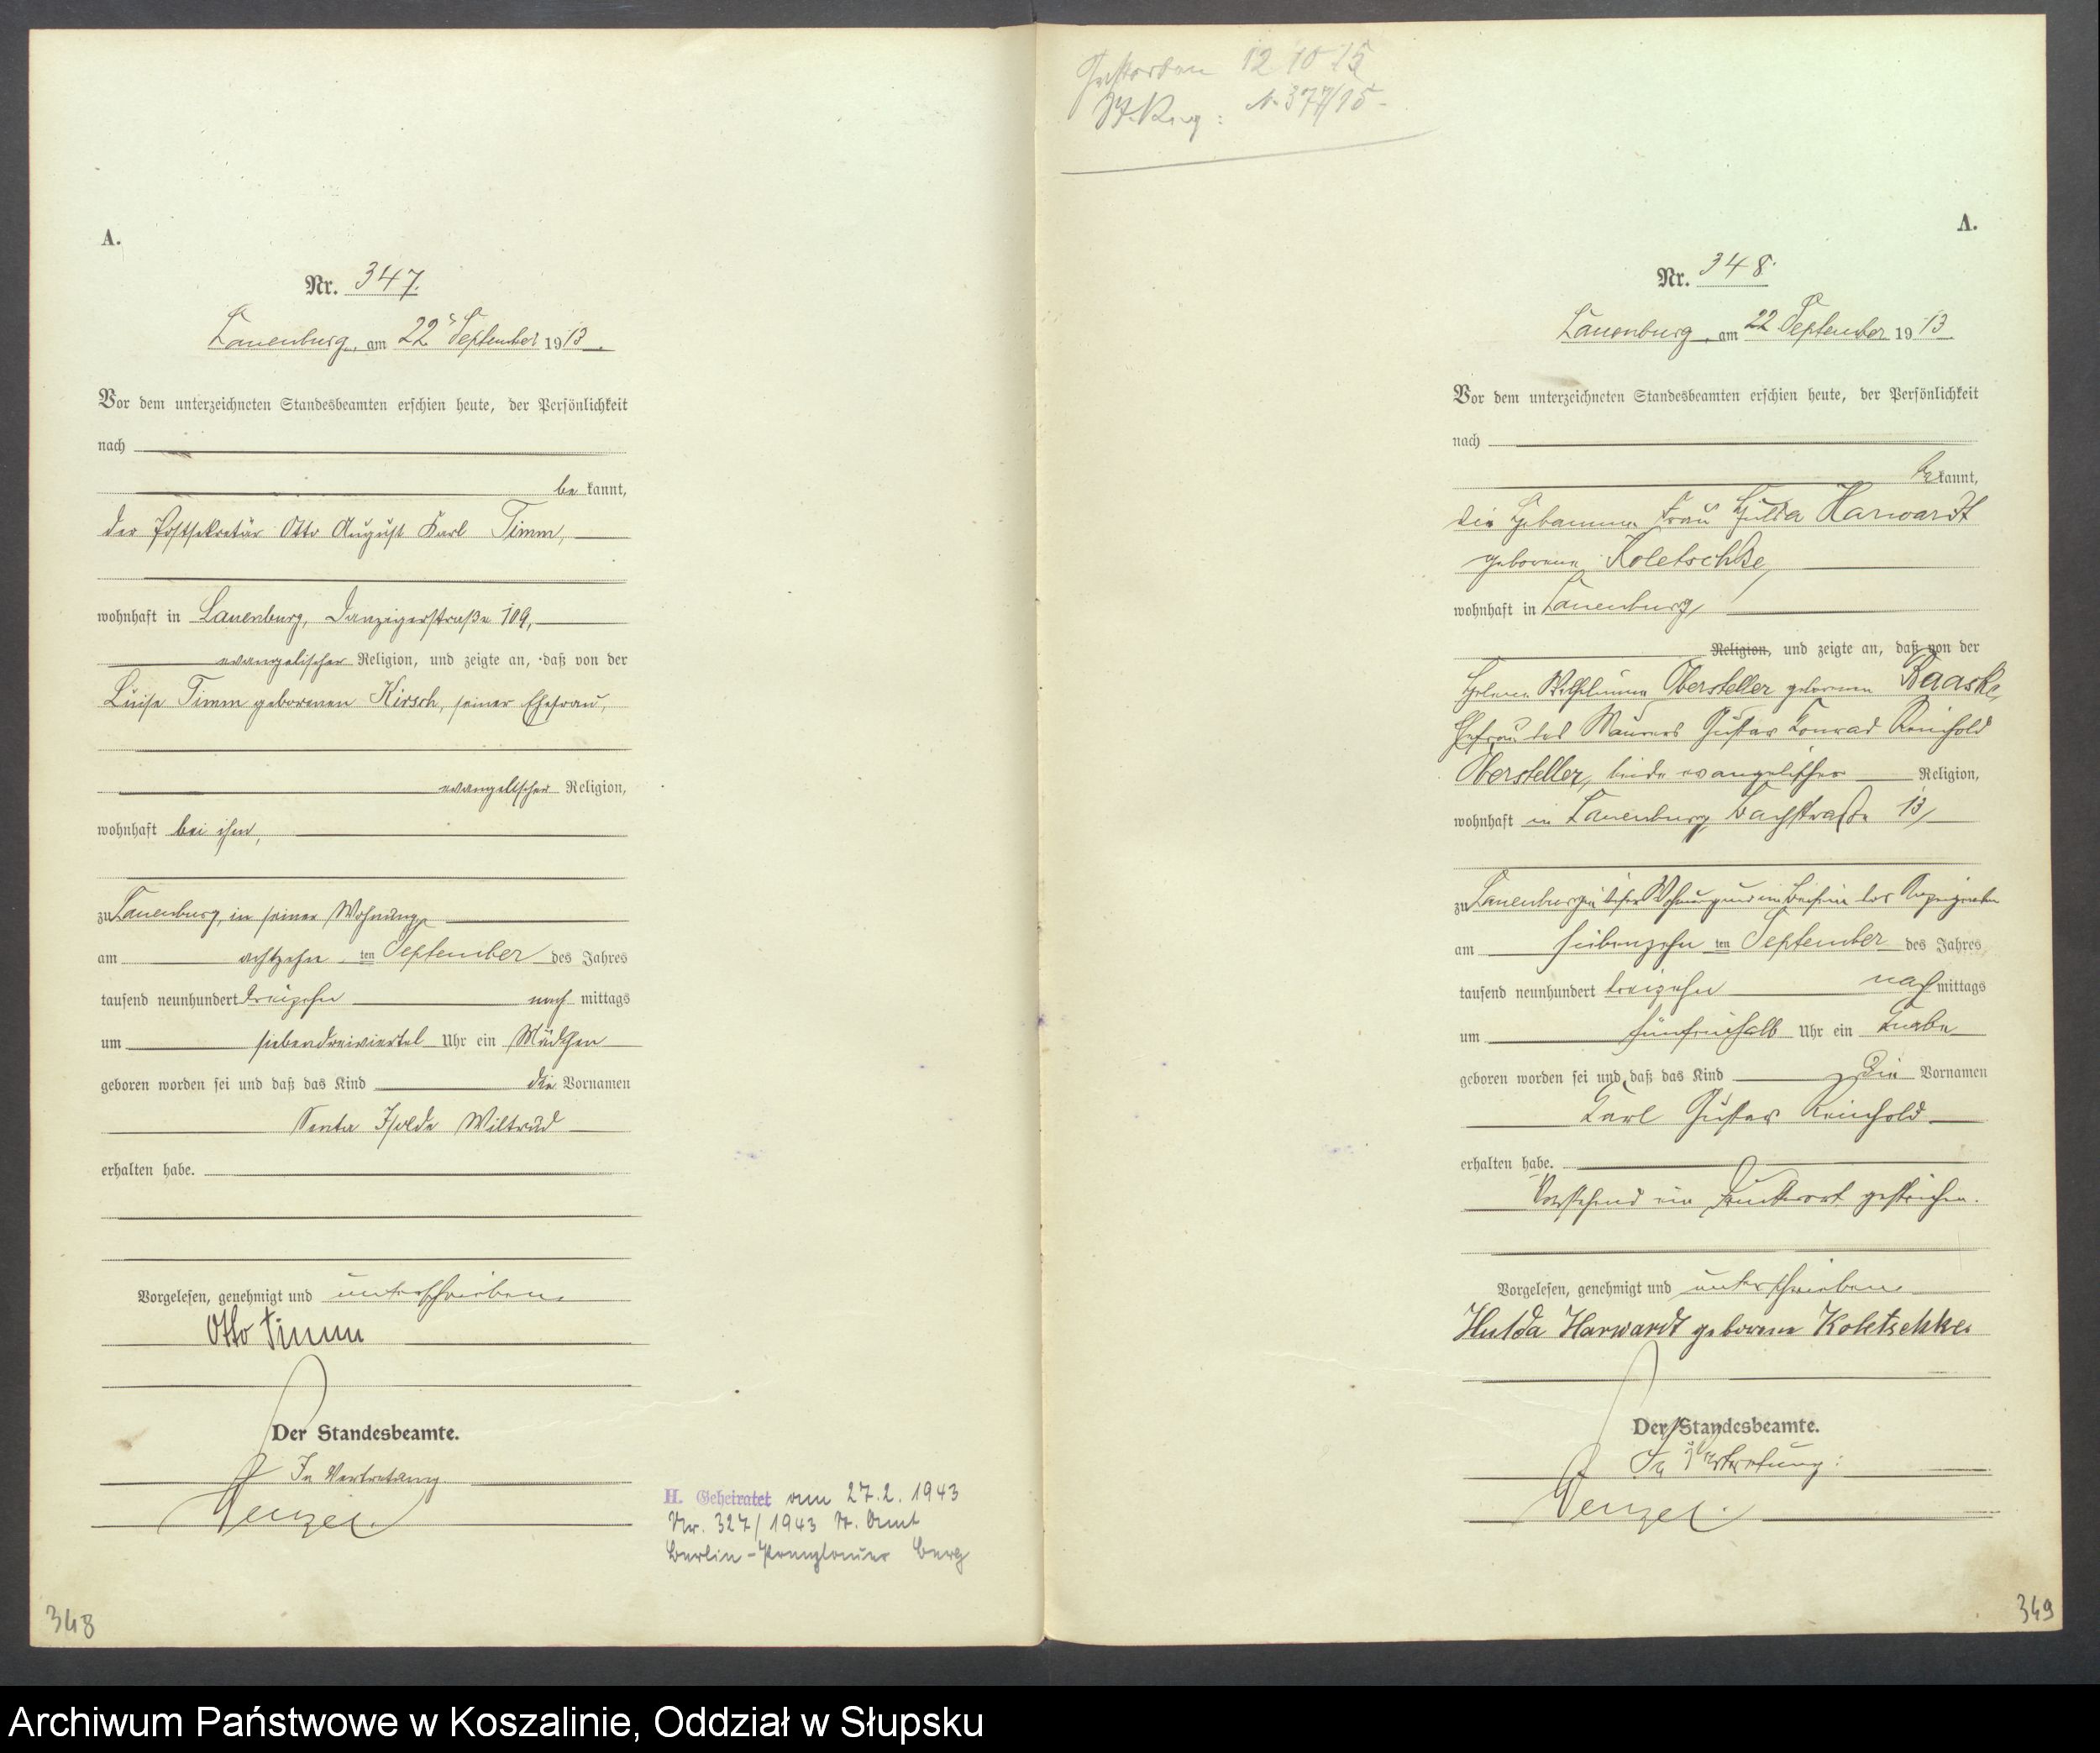 A.
Nr. 347.
Lauenburg, am 22. September 1913.
Vor dem unterzeichneten Standesbeamten erschien heute, der Persönlichkeit
nach
be kannt,
der Postsekretär Otto August Karl Timm,
wohnhaft in Lauenburg, Danzigerstraße 109,
evangelischer Religion, und zeigte an, daß von der
Luise Timm geborenen Kirsch, seiner Ehefrau,
evangelischer Religion,
wohnhaft bei ihm,
zu Lauenburg, in seiner Wohnung,
am achtzehn ten September des Jahres
tausend neunhundert dreizehn nach mittags
um siebendreiviertel Uhr ein Mädchen
geboren worden sei und daß das Kind die Vornamen
Senta Isolde Wiltrud
erhalten habe.
Vorgelesen, genehmigt und unterschrieben.
Otto Timm
Der Standesbeamte.
In Vertretung
Wenzel.
II. Geheiratet am 27.2.1943
Nr. 327/1943 St. Amt
Berlin-Prenzlauer Berg
348
Gestorben 12 10 15
St. Reg: N. 377/15-
A.
Nr. 348.
Lauenburg, am 22 September 1913.
Vor dem unterzeichneten Standesbeamten erschien heute, der Persönlichkeit
nach
be kannt,
die Hebamme Frau Hulda Harwardt
geborene Koletschke,
wohnhaft in Lauenburg,
Religion, und zeigte an, daß von der
Helene Wilhelmine Obersteller geborenen Baaske,
Ehefrau des Maurers Gustav Konrad Reinhold
Obersteller, beide evangelischer Religion,
wohnhaft in Lauenburg, Bachstraße 13,
zu Lauenburg in dieser Wohnung und im Beisein der Anzeigenden
am siebenzehn ten September des Jahres
tausend neunhundert dreizehn nach mittags
um fünfeinhalb Uhr ein Knabe
geboren worden sei und daß das Kind die Vornamen
Karl Gustav Reinhold
erhalten habe.
Vorstehend ein Druckwort gestrichen.
Vorgelesen, genehmigt und unterschrieben.
Hulda Harwardt geborene Koletschke.
Der Standesbeamte.
In Vertretung:
Wenzel.
349
Archiwum Państwowe w Koszalinie, Oddział w Słupsku